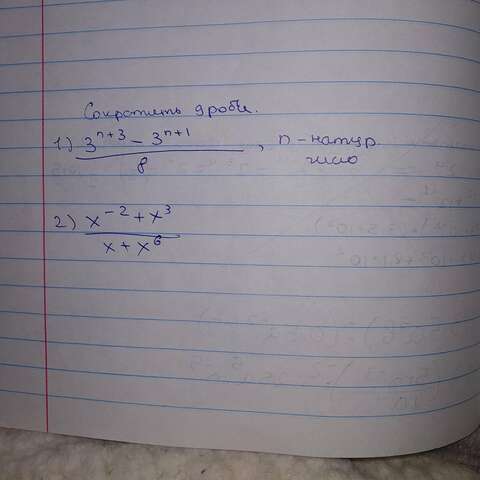 Сократить дроби.
1) (3^{n+3} - 3^{n+1}) / 8 , n - натур. число
2) (x^{-2} + x^3) / (x + x^6)